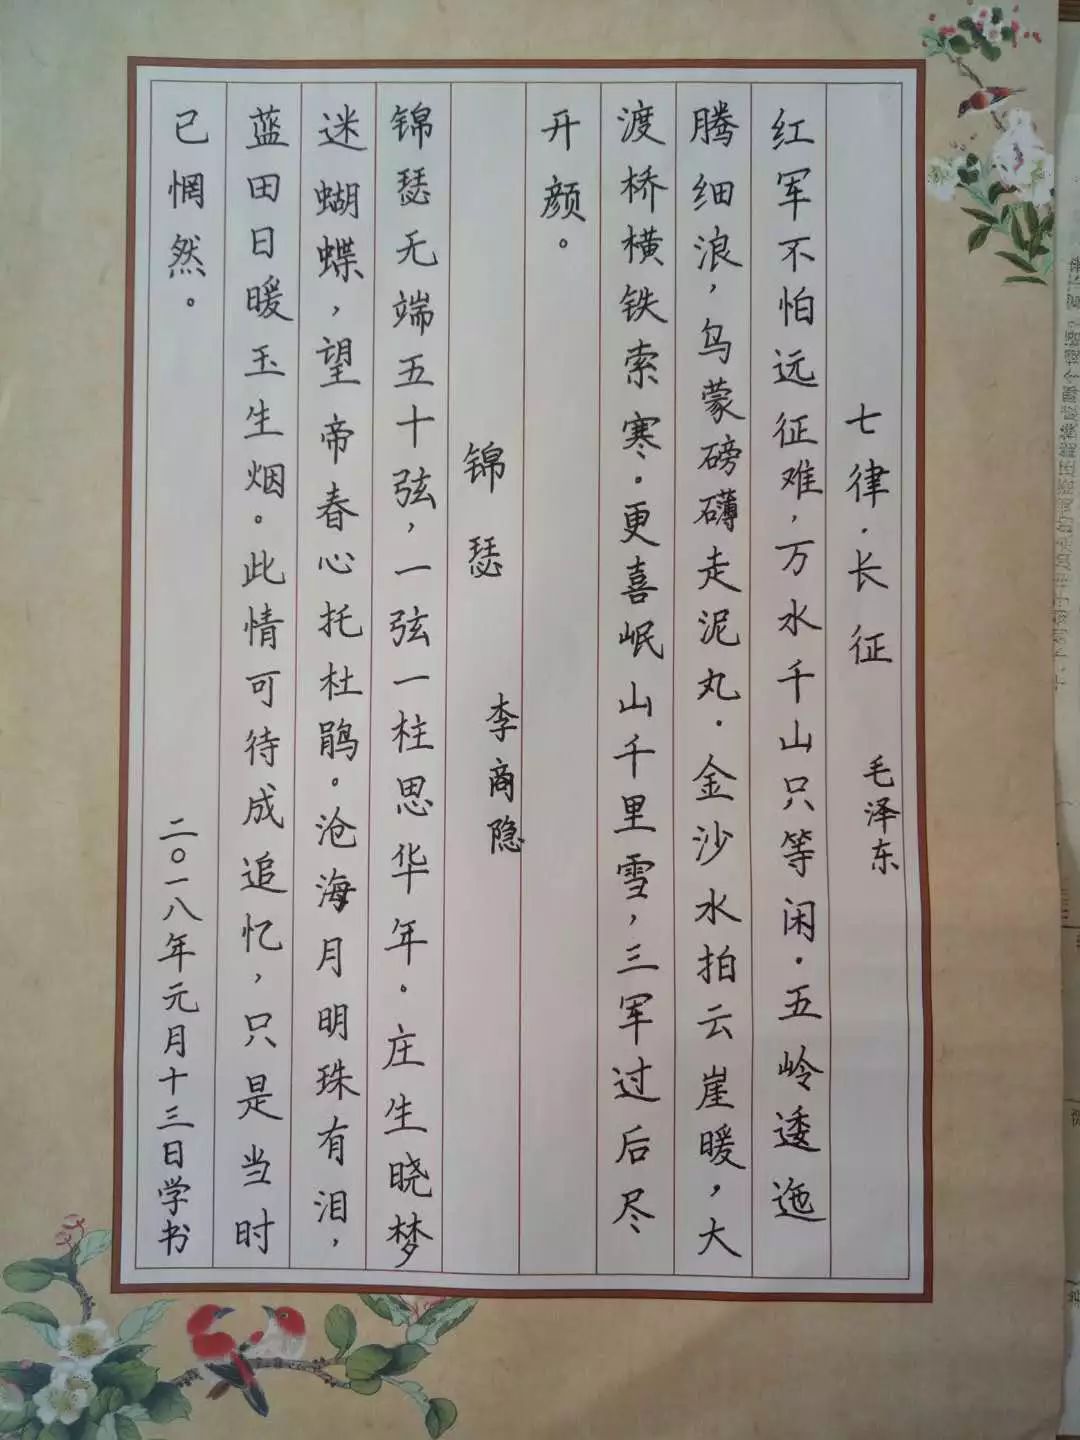 七律·长征 毛泽东
红军不怕远征难，万水千山只等闲。五岭逶迤
腾细浪，乌蒙磅礴走泥丸。金沙水拍云崖暖，大
渡桥横铁索寒。更喜岷山千里雪，三军过后尽
开颜。
锦瑟 李商隐
锦瑟无端五十弦，一弦一柱思华年。庄生晓梦
迷蝴蝶，望帝春心托杜鹃。沧海月明珠有泪，
蓝田日暖玉生烟。此情可待成追忆，只是当时
已惘然。
二〇一八年元月十三日学书